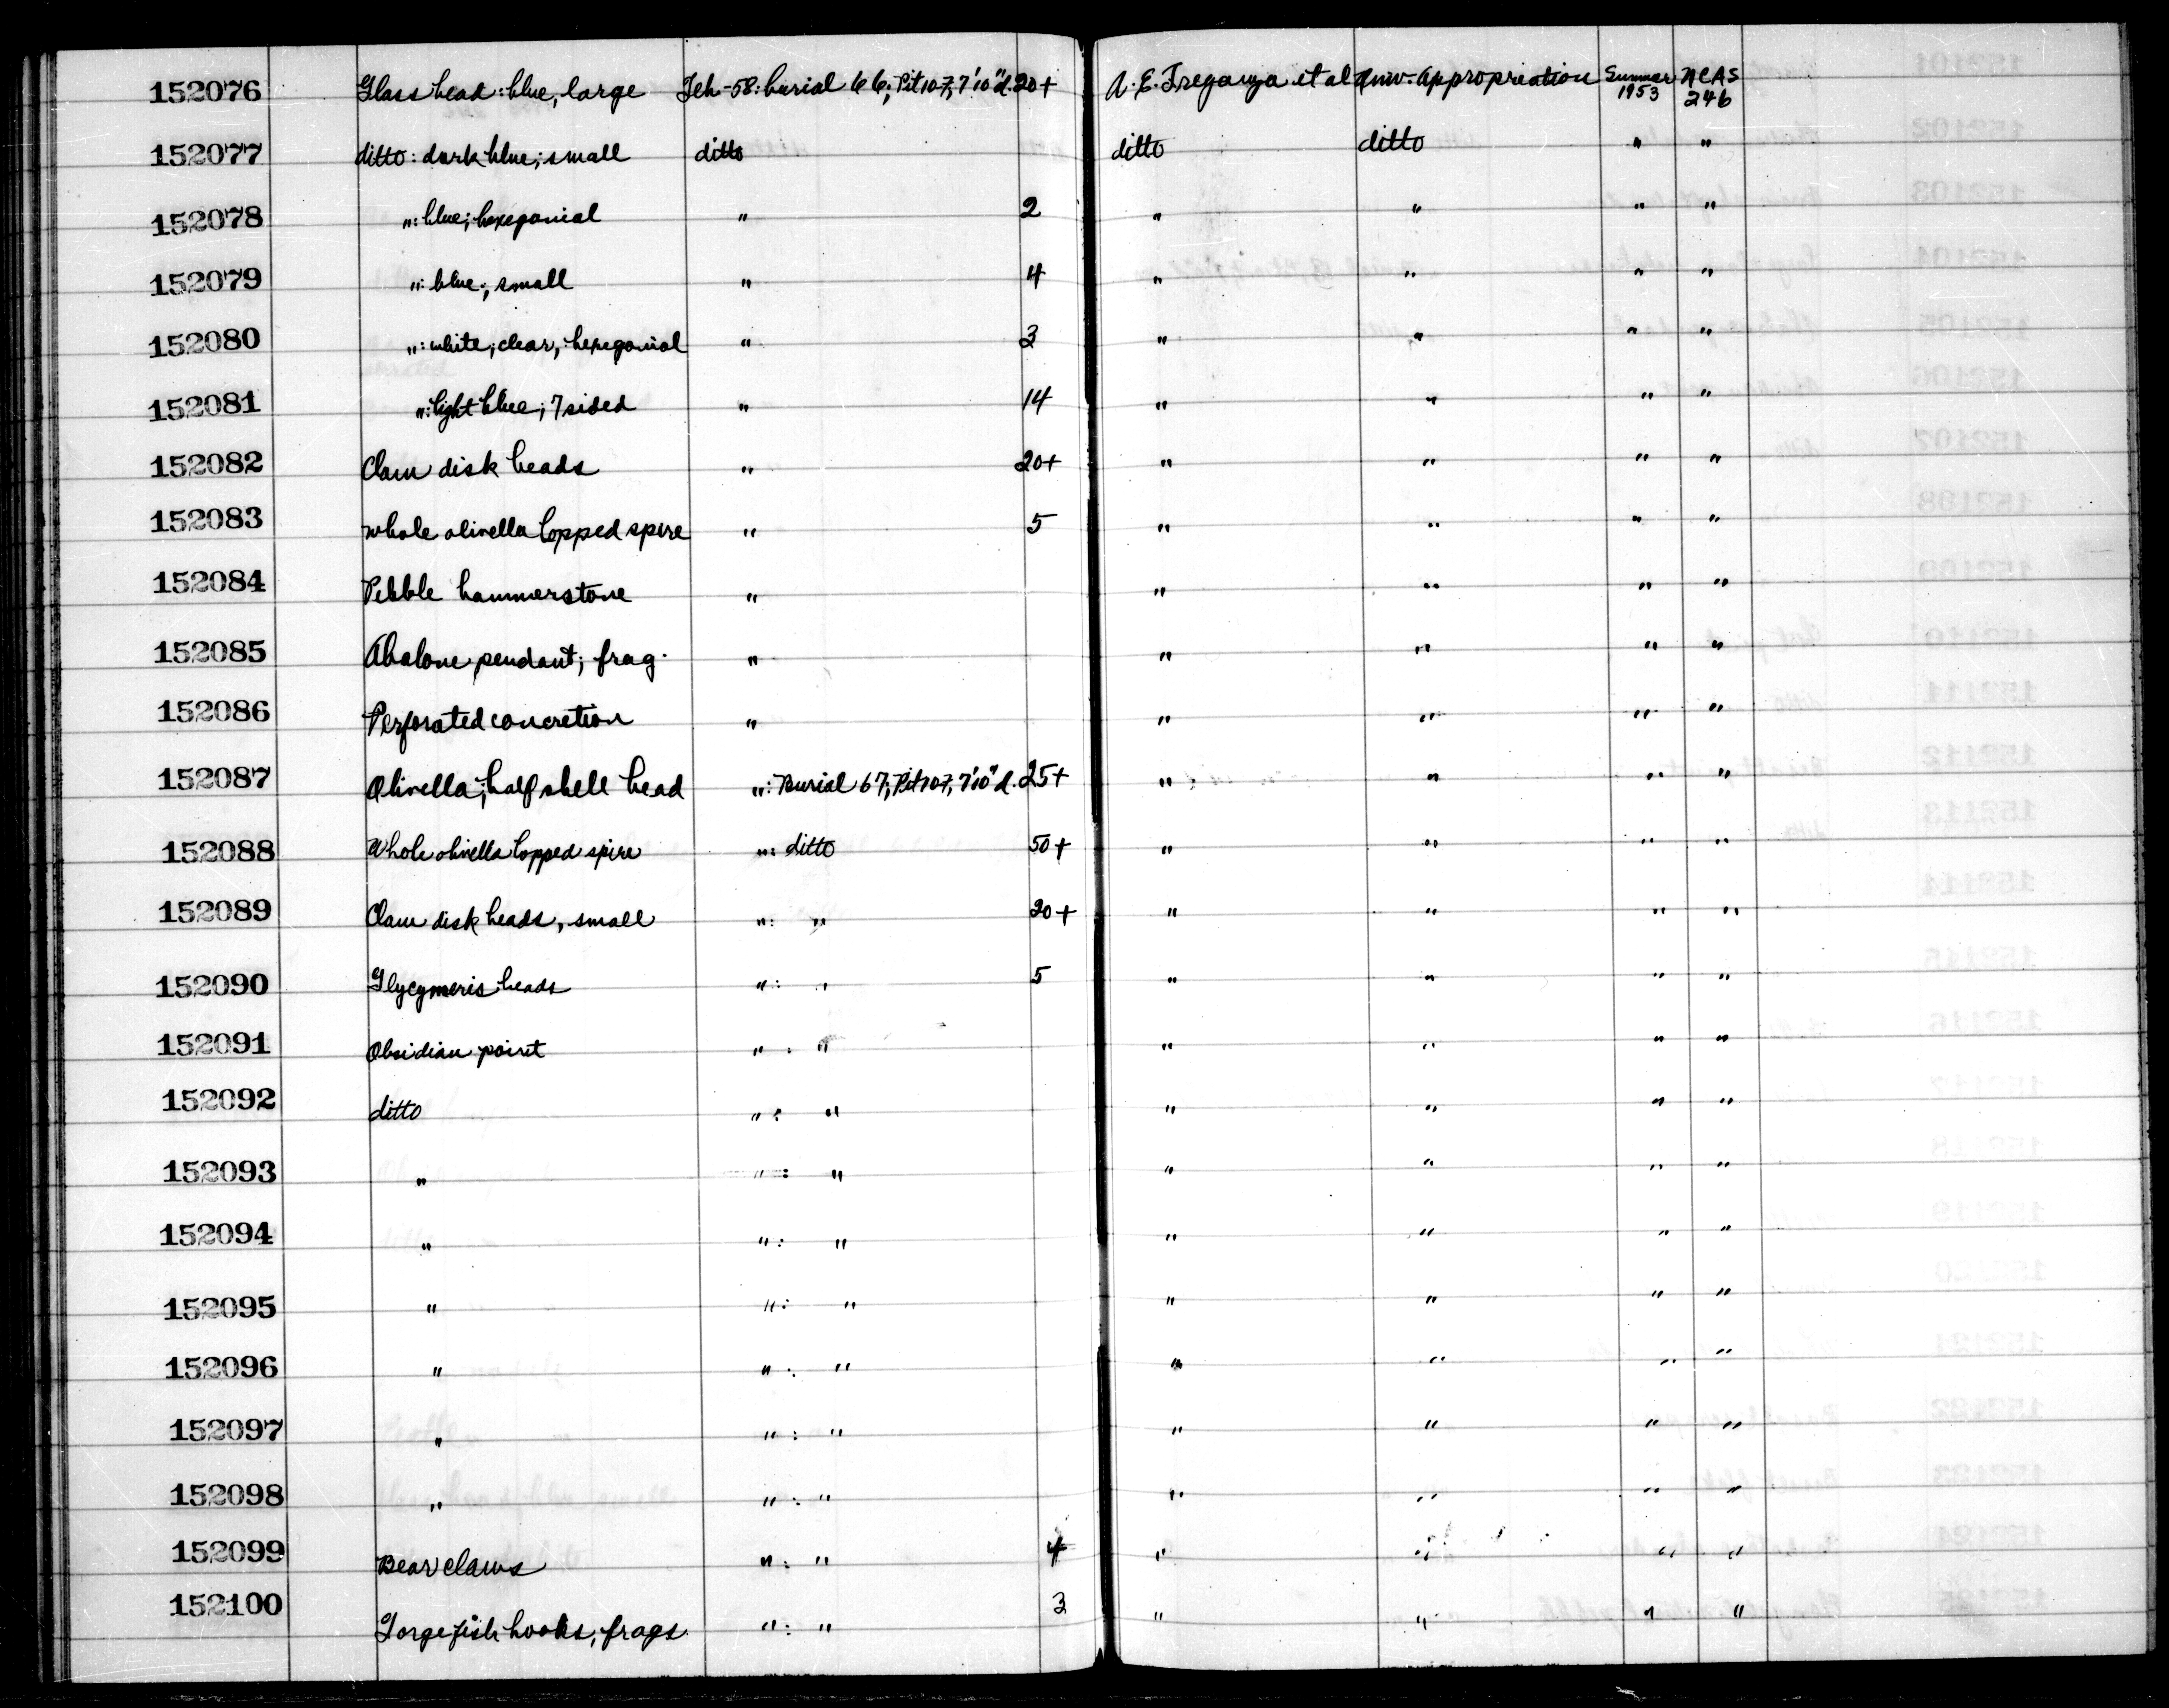 152076 Glass bead: blue, large Teh-58: burial 66; Pit 107, 7'10" d. 20+ A. E. Treganza et al Univ. Appropriation Summer 1953 UCAS 246
152077 ditto: dark blue; small ditto ditto ditto " "
152078 ": blue; hexegonial " 2 " " " "
152079 ": blue; small " 4 " " " "
152080 ": white; clear; hexegonial " 3 " " " "
152081 ": light blue; 7 sided " 14 " " " "
152082 Clam disk beads " 20+ " " " "
152083 whole olivella lopped spire " 5 " " " "
152084 Pebble hammerstone " " " " "
152085 Abalone pendant; frag. " " " " "
152086 Perforated concretion " " " " "
152087 Olivella; half shell bead ": Burial 67; Pit 107, 7'10" d. 25+ " " " "
152088 Whole olivella lopped spire ": ditto 50+ " " " "
152089 Clam disk beads, small ": " 20+ " " " "
152090 Glycymeris beads ": " 5 " " " "
152091 Obsidian point ": " " " " "
152092 ditto ": " " " " "
152093 " ": " " " " "
152094 " ": " " " " "
152095 " ": " " " " "
152096 " ": " " " " "
152097 " ": " " " " "
152098 " ": " " " " "
152099 Bear claws ": " 4 " " " "
152100 Gorge fish hooks; frags. ": " 3 " " " "